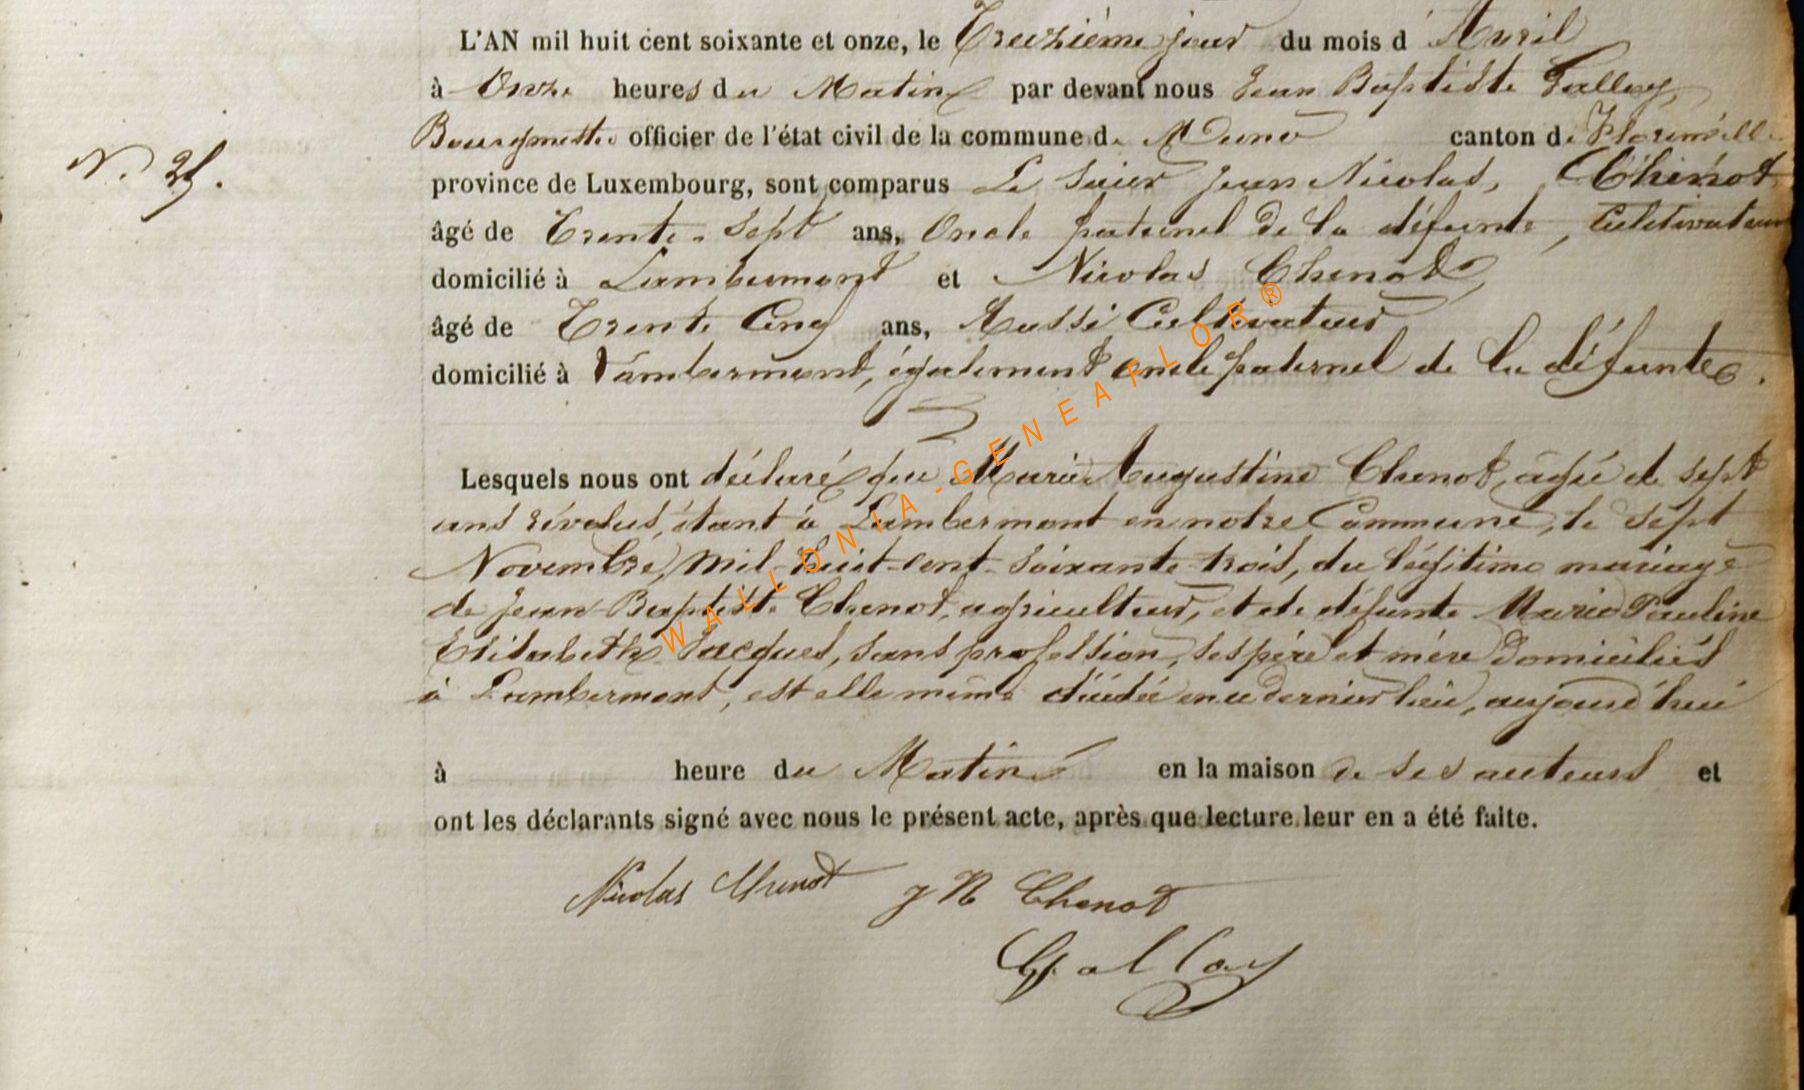 L'AN mil huit cent soixante et onze, le Treizième jour du mois d' Avril
à Onze heures du Matin par devant nous Jean Baptiste Gallay,
Bourgmestre officier de l'état civil de la commune de Muno canton de Florenville
N. 25.
province de Luxembourg, sont comparus Le Sieur Jean Nicolas, Chenot
âgé de Trente-Sept ans, Oncle paternel de la défunte, Cultivateur
domicilié à Lambermont et Nicolas Chenot,
âgé de Trente Cinq ans, Aussi Cultivateur
domicilié à Lambermont, également oncle paternel de la défunte.
Lesquels nous ont déclaré que Marie Augustine Chenot, âgée de sept
ans révolus, étant à Lambermont en notre Commune, le Sept
Novembre, Mil-huit-cent-soixante-trois, du légitime mariage
de Jean-Baptiste Chenot, agriculteur, et de défunte Marie Pauline
Elisabeth Jacques, sans profession, ses père et mère domiciliés
à Lambermont, est elle même décédée en ce dernier lieu, aujourd'hui
à heure du Matin en la maison de ses auteurs et
ont les déclarants signé avec nous le présent acte, après que lecture leur en a été faite.
Nicolas Chenot J N Chenot
Gallay
WALLONIA-GENEAFLOR®